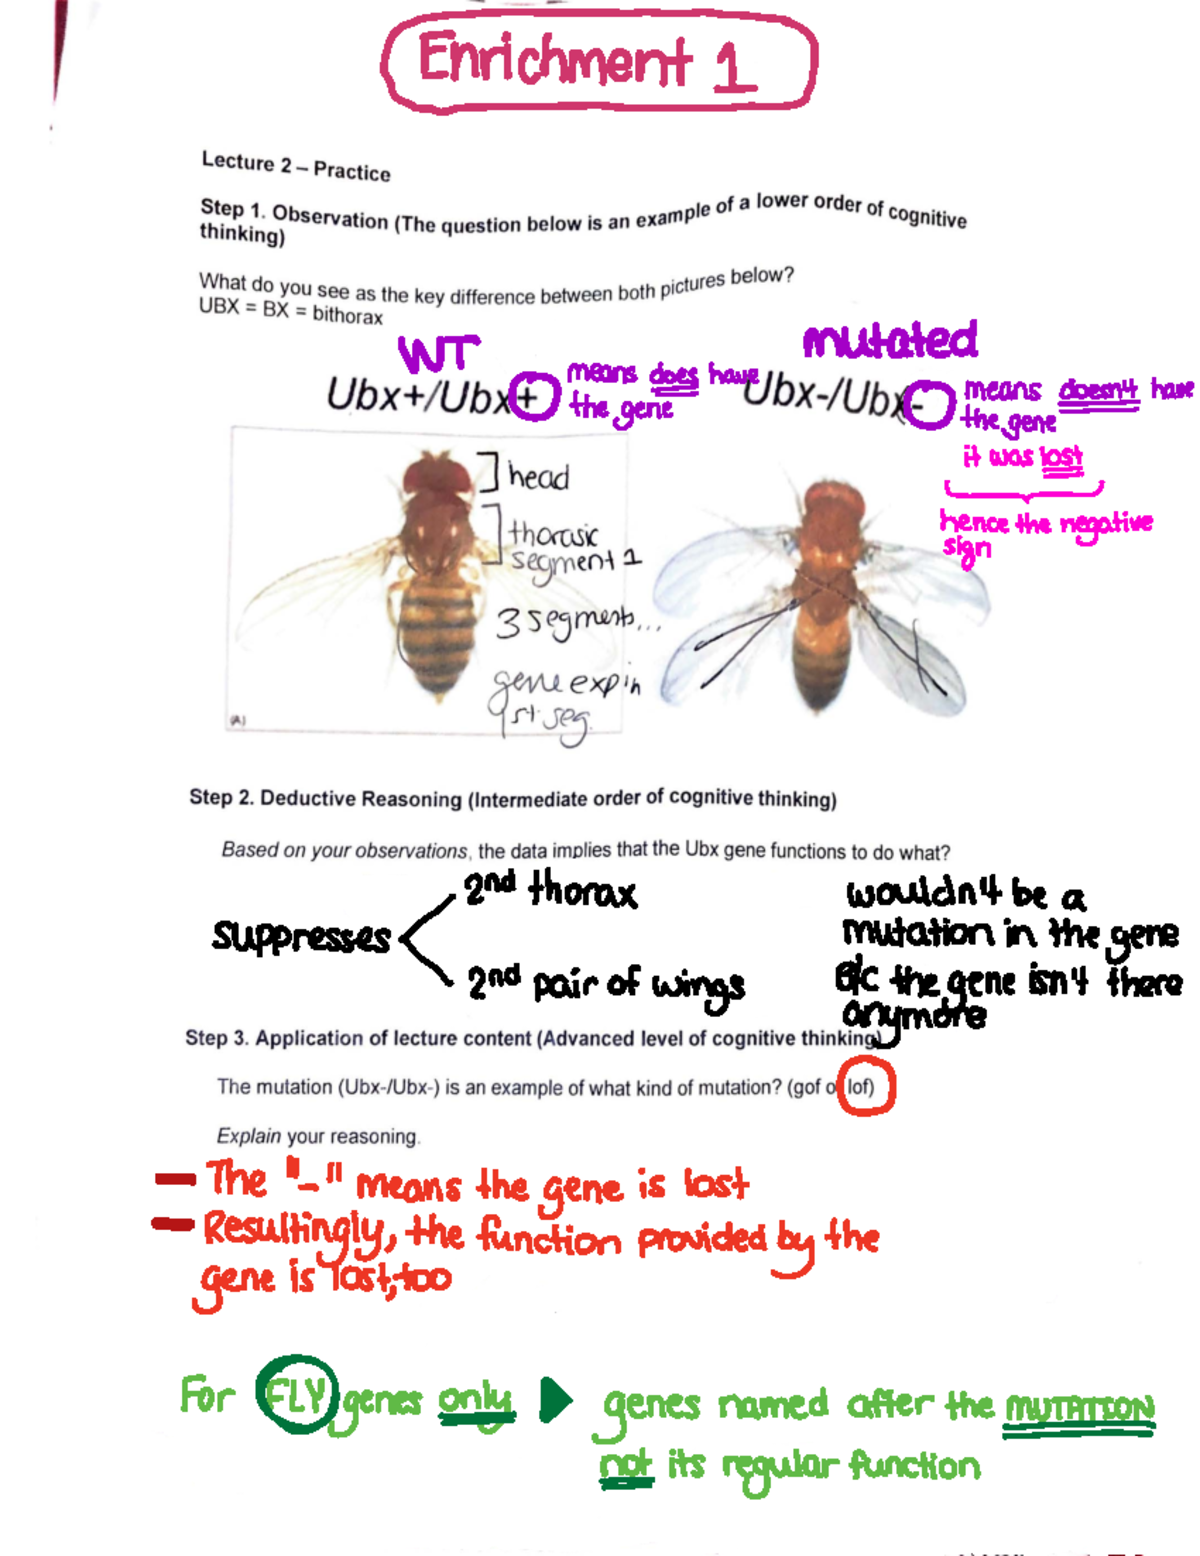 Enrichment 1
Lecture 2 – Practice
Step 1. Observation (The question below is an example of a lower order of cognitive
thinking)
What do you see as the key difference between both pictures below?
UBX = BX = bithorax
WT
mutated
Ubx+/Ubx+
means does have
the gene
Ubx-/Ubx-
means doesn't have
the gene
it was lost
hence the negative
sign
head
thorasic
segment 1
3 segments...
gene exp in
1st seg.
(A)
Step 2. Deductive Reasoning (Intermediate order of cognitive thinking)
Based on your observations, the data implies that the Ubx gene functions to do what?
suppresses
2nd thorax
2nd pair of wings
wouldn't be a
mutation in the gene
b/c the gene isn't there
anymore
Step 3. Application of lecture content (Advanced level of cognitive thinking)
The mutation (Ubx-/Ubx-) is an example of what kind of mutation? (gof o lof)
Explain your reasoning.
– The "–" means the gene is lost
– Resultingly, the function provided by the
gene is lost, too
For FLY genes only ▶ genes named after the MUTATION
not its regular function